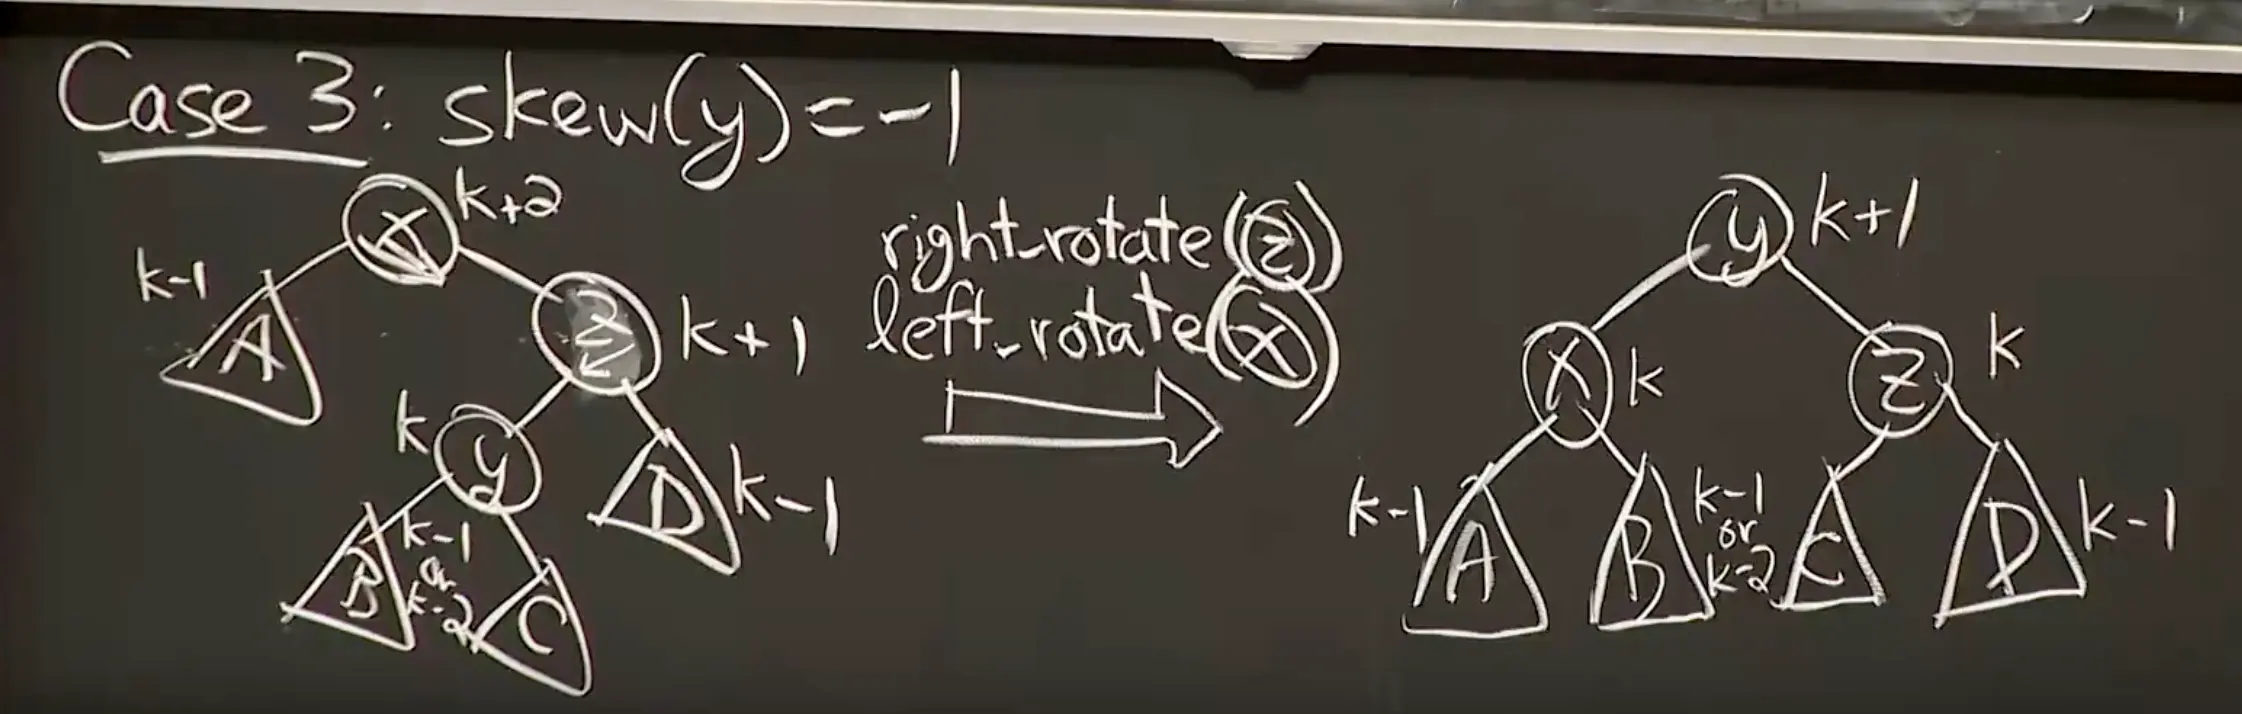 Case 3: skew(y)=-1
x k+2
k-1
A
z k+1
k y
D k-1
B k-1 or k-2 C
right_rotate(z)
left_rotate(x)
y k+1
x k
z k
k-1 A
B k-1 or k-2 C
D k-1